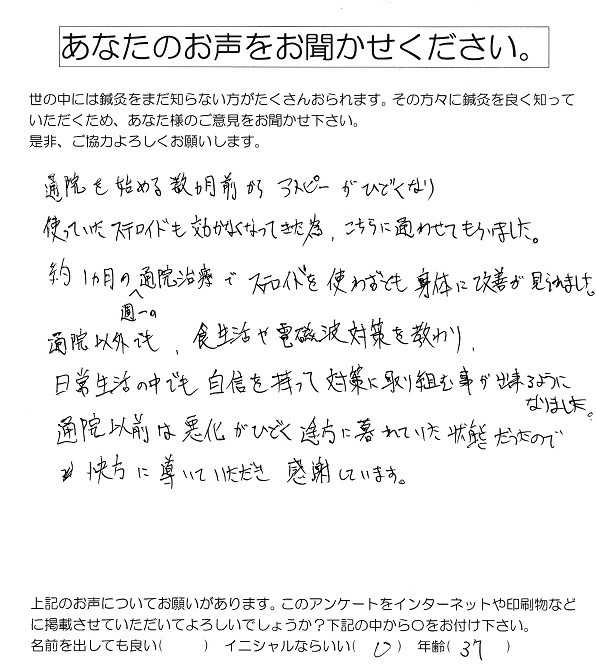 あなたのお声をお聞かせください。
世の中には鍼灸をまだ知らない方がたくさんおられます。その方々に鍼灸を良く知って
いただくため、あなた様のご意見をお聞かせ下さい。
是非、ご協力よろしくお願いします。
通院を始める数カ月前から アトピーがひどくなり
使っていたステロイドも効かなくなってきた為、こちらに通わせてもらいました。
約1カ月の週一の通院治療で ステロイドを使わずとも身体に改善が見られました。
通院以外でも、食生活や電磁波対策を教わり、
日常生活の中でも自信を持って対策に取り組む事が出来るように
なりました。
通院以前は悪化がひどく途方に暮れていた状態だったので
快方に導いていただき 感謝しています。
上記のお声についてお願いがあります。このアンケートをインターネットや印刷物など
に掲載させていただいてよろしいでしょうか？下記の中から○をお付け下さい。
名前を出しても良い( ) イニシャルならいい( ) 年齢( 37 )